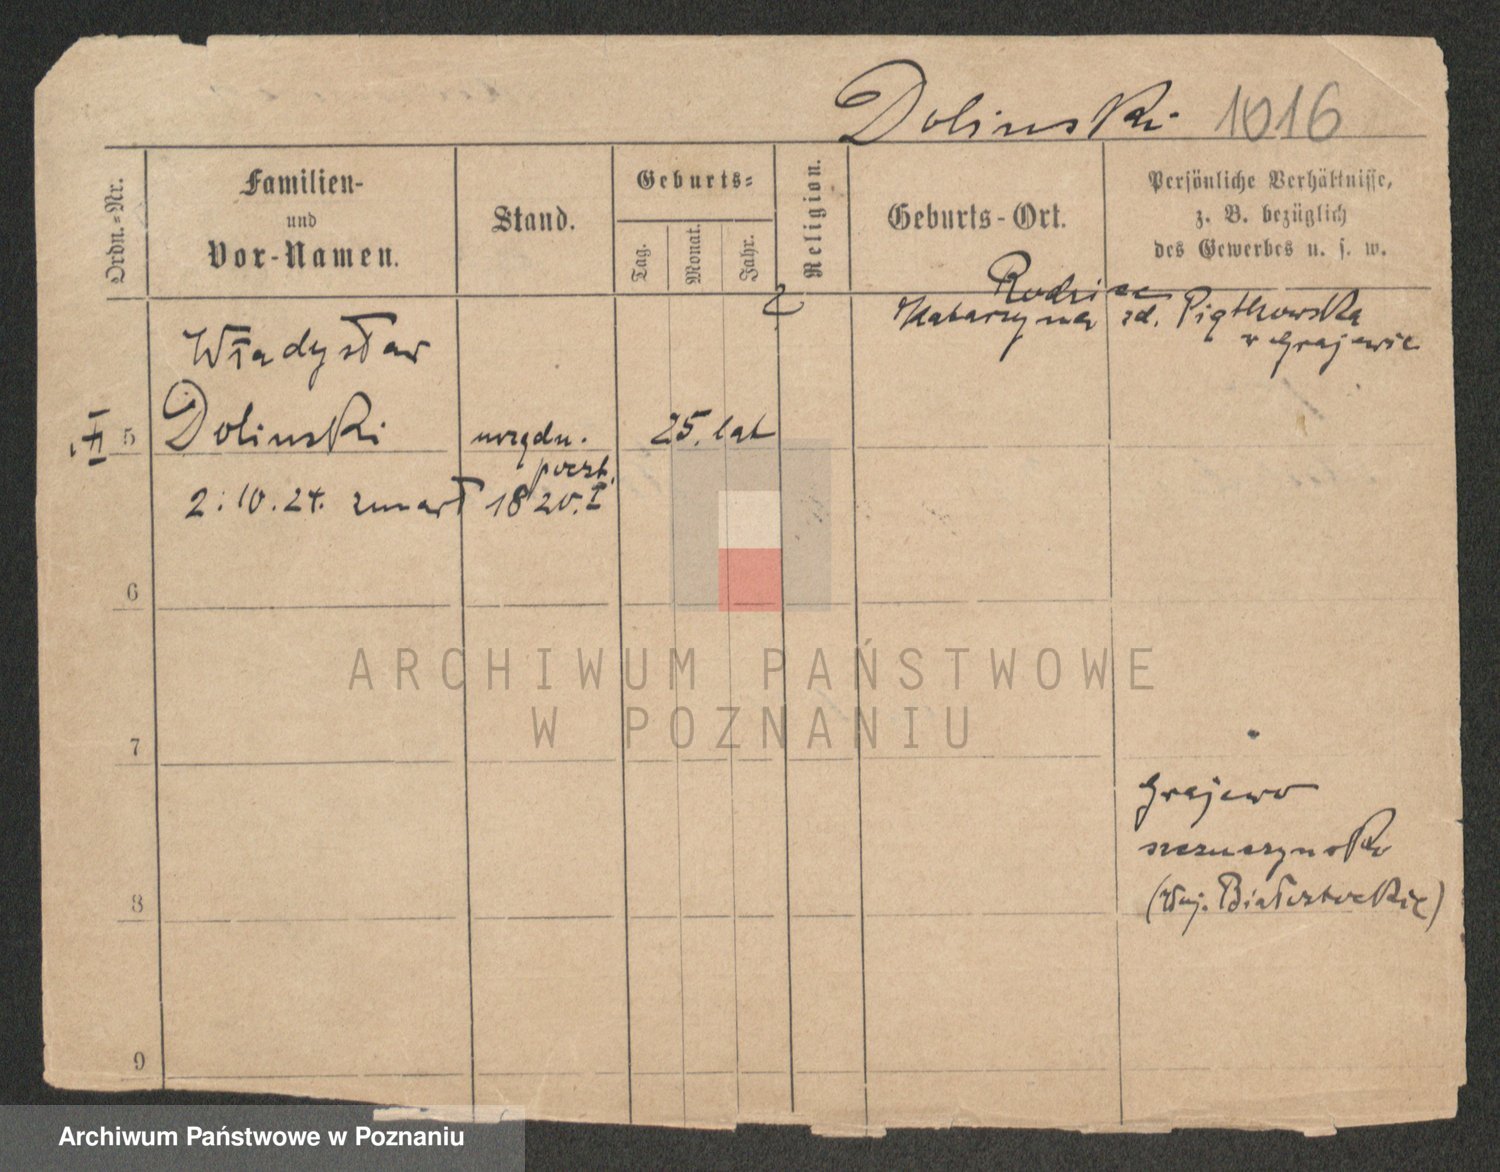 Dolinski 1016
Ordn.-Nr.
Familien-
und
Vor-Namen.
Stand.
Geburts-
Tag.
Monat.
Jahr.
Religion.
Geburts-Ort.
Persönliche Verhältnisse,
z. B. bezüglich
des Gewerbes u. s. w.
Rodzice
Katarzyna zd. Piątkowska
w Grajewie
Władysław
5 Dolinski urzędn. 25. lat
poczt.
2.10.24. zmarł 18 20. I
6
7
Grajewo
szczuczynsko
8 (Woj. Białostockie)
9
ARCHIWUM PAŃSTWOWE
W POZNANIU
Archiwum Państwowe w Poznaniu